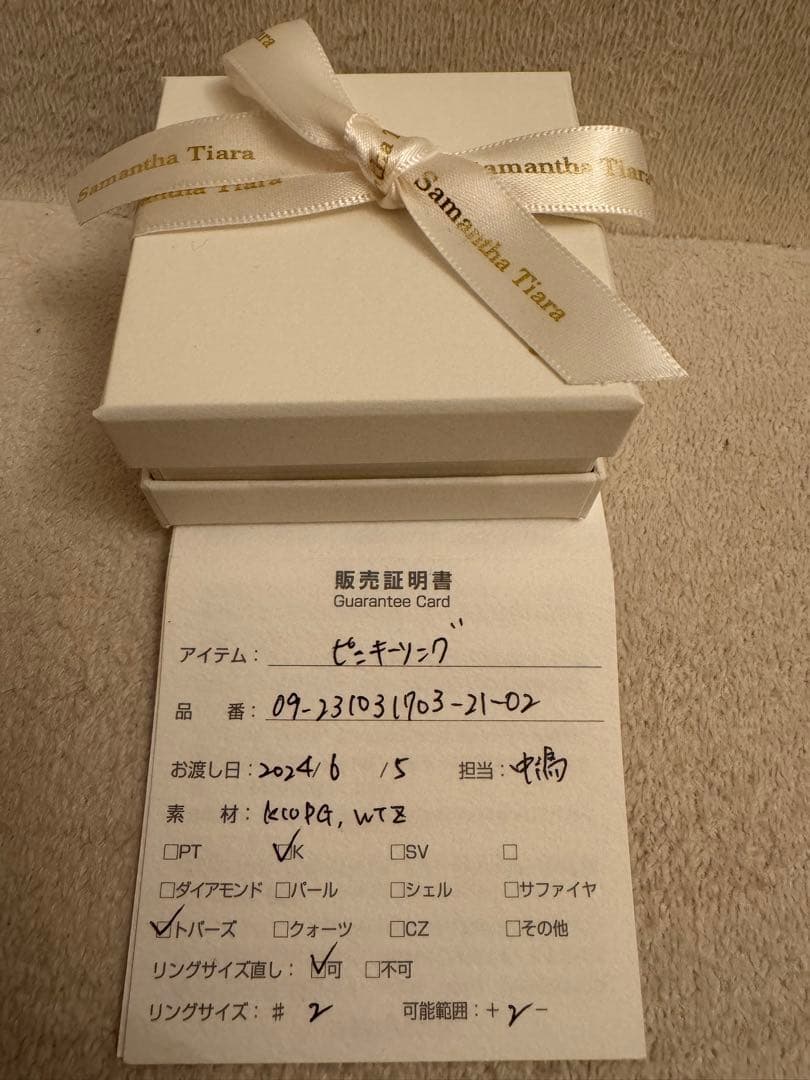 Samantha Tiara
Samantha Tiara
Samantha Tiara
販売証明書
Guarantee Card
アイテム: ピンキーリング
品 番: 09-231031703-21-02
お渡し日: 2024/6/5 担当: 中嶋
素 材: K10PG, WTZ
□PT ☑K □SV □
□ダイアモンド □パール □シェル □サファイヤ
☑トパーズ □クォーツ □CZ □その他
リングサイズ直し: ☑可 □不可
リングサイズ: # 2 可能範囲: + 2 -